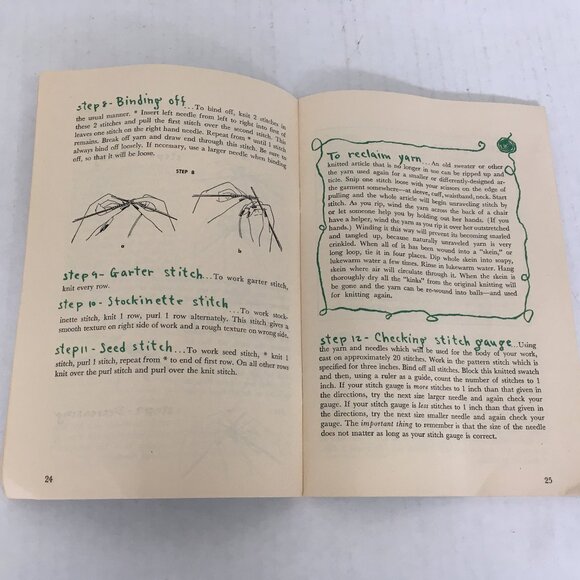 step 8 - Binding off...To bind off, knit 2 stitches in
the usual manner. * Insert left needle from left to right into first of
these 2 stitches and pull the first stitch over the second stitch. This
leaves one stitch on the right hand needle. Repeat from * until 1 stitch
remains. Break off yarn and draw end through this stitch. Be sure to
always bind off loosely. If necessary, use a larger needle when binding
off, so that it will be loose.
STEP 8
a
b
step 9 - Garter stitch...To work garter stitch,
knit every row.
step 10 - Stockinette stitch...To work stock-
inette stitch, knit 1 row, purl 1 row alternately. This stitch gives a
smooth texture on right side of work and a rough texture on wrong side.
step 11 - Seed stitch...To work seed stitch, * knit 1
stitch, purl 1 stitch, repeat from * to end of first row. On all other rows
knit over the purl stitch and purl over the knit stitch.
24
To reclaim yarn...An old sweater or other
knitted article that is no longer in use can be ripped up and
the yarn used again for a smaller or differently-designed ar-
ticle. Snip one stitch loose with your scissors on the edge of
the garment somewhere—at sleeve, cuff, waistband, neck. Start
pulling and the whole article will begin unraveling stitch by
stitch. As you rip, wind the yarn across the back of a chair
or let someone help you by holding out her hands. (If you
have a helper, wind the yarn as you rip it over her outstretched
hands.) Winding it this way will prevent its becoming snarled
and tangled up, because naturally unraveled yarn is very
crinkled. When all of it has been wound into a "skein," or
long loop, tie it in four places. Dip whole skein into soapy,
lukewarm water a few times. Rinse in lukewarm water. Hang
skein where air will circulate through it. When the skein is
thoroughly dry all the "kinks" from the original knitting will
be gone and the yarn can be re-wound into balls—and used
for knitting again.
step 12 - Checking stitch gauge...Using
the yarn and needles which will be used for the body of your work,
cast on approximately 20 stitches. Work in the pattern stitch which is
specified for three inches. Bind off all stitches. Block this knitted swatch
and then, using a ruler as a guide, count the number of stitches to 1
inch. If your stitch gauge is more stitches to 1 inch than that given in
the directions, try the next size larger needle and again check your
gauge. If your stitch gauge is less stitches to 1 inch than that given in
the directions, try the next size smaller needle and again check your
gauge. The important thing to remember is that the size of the needle
does not matter as long as your stitch gauge is correct.
25